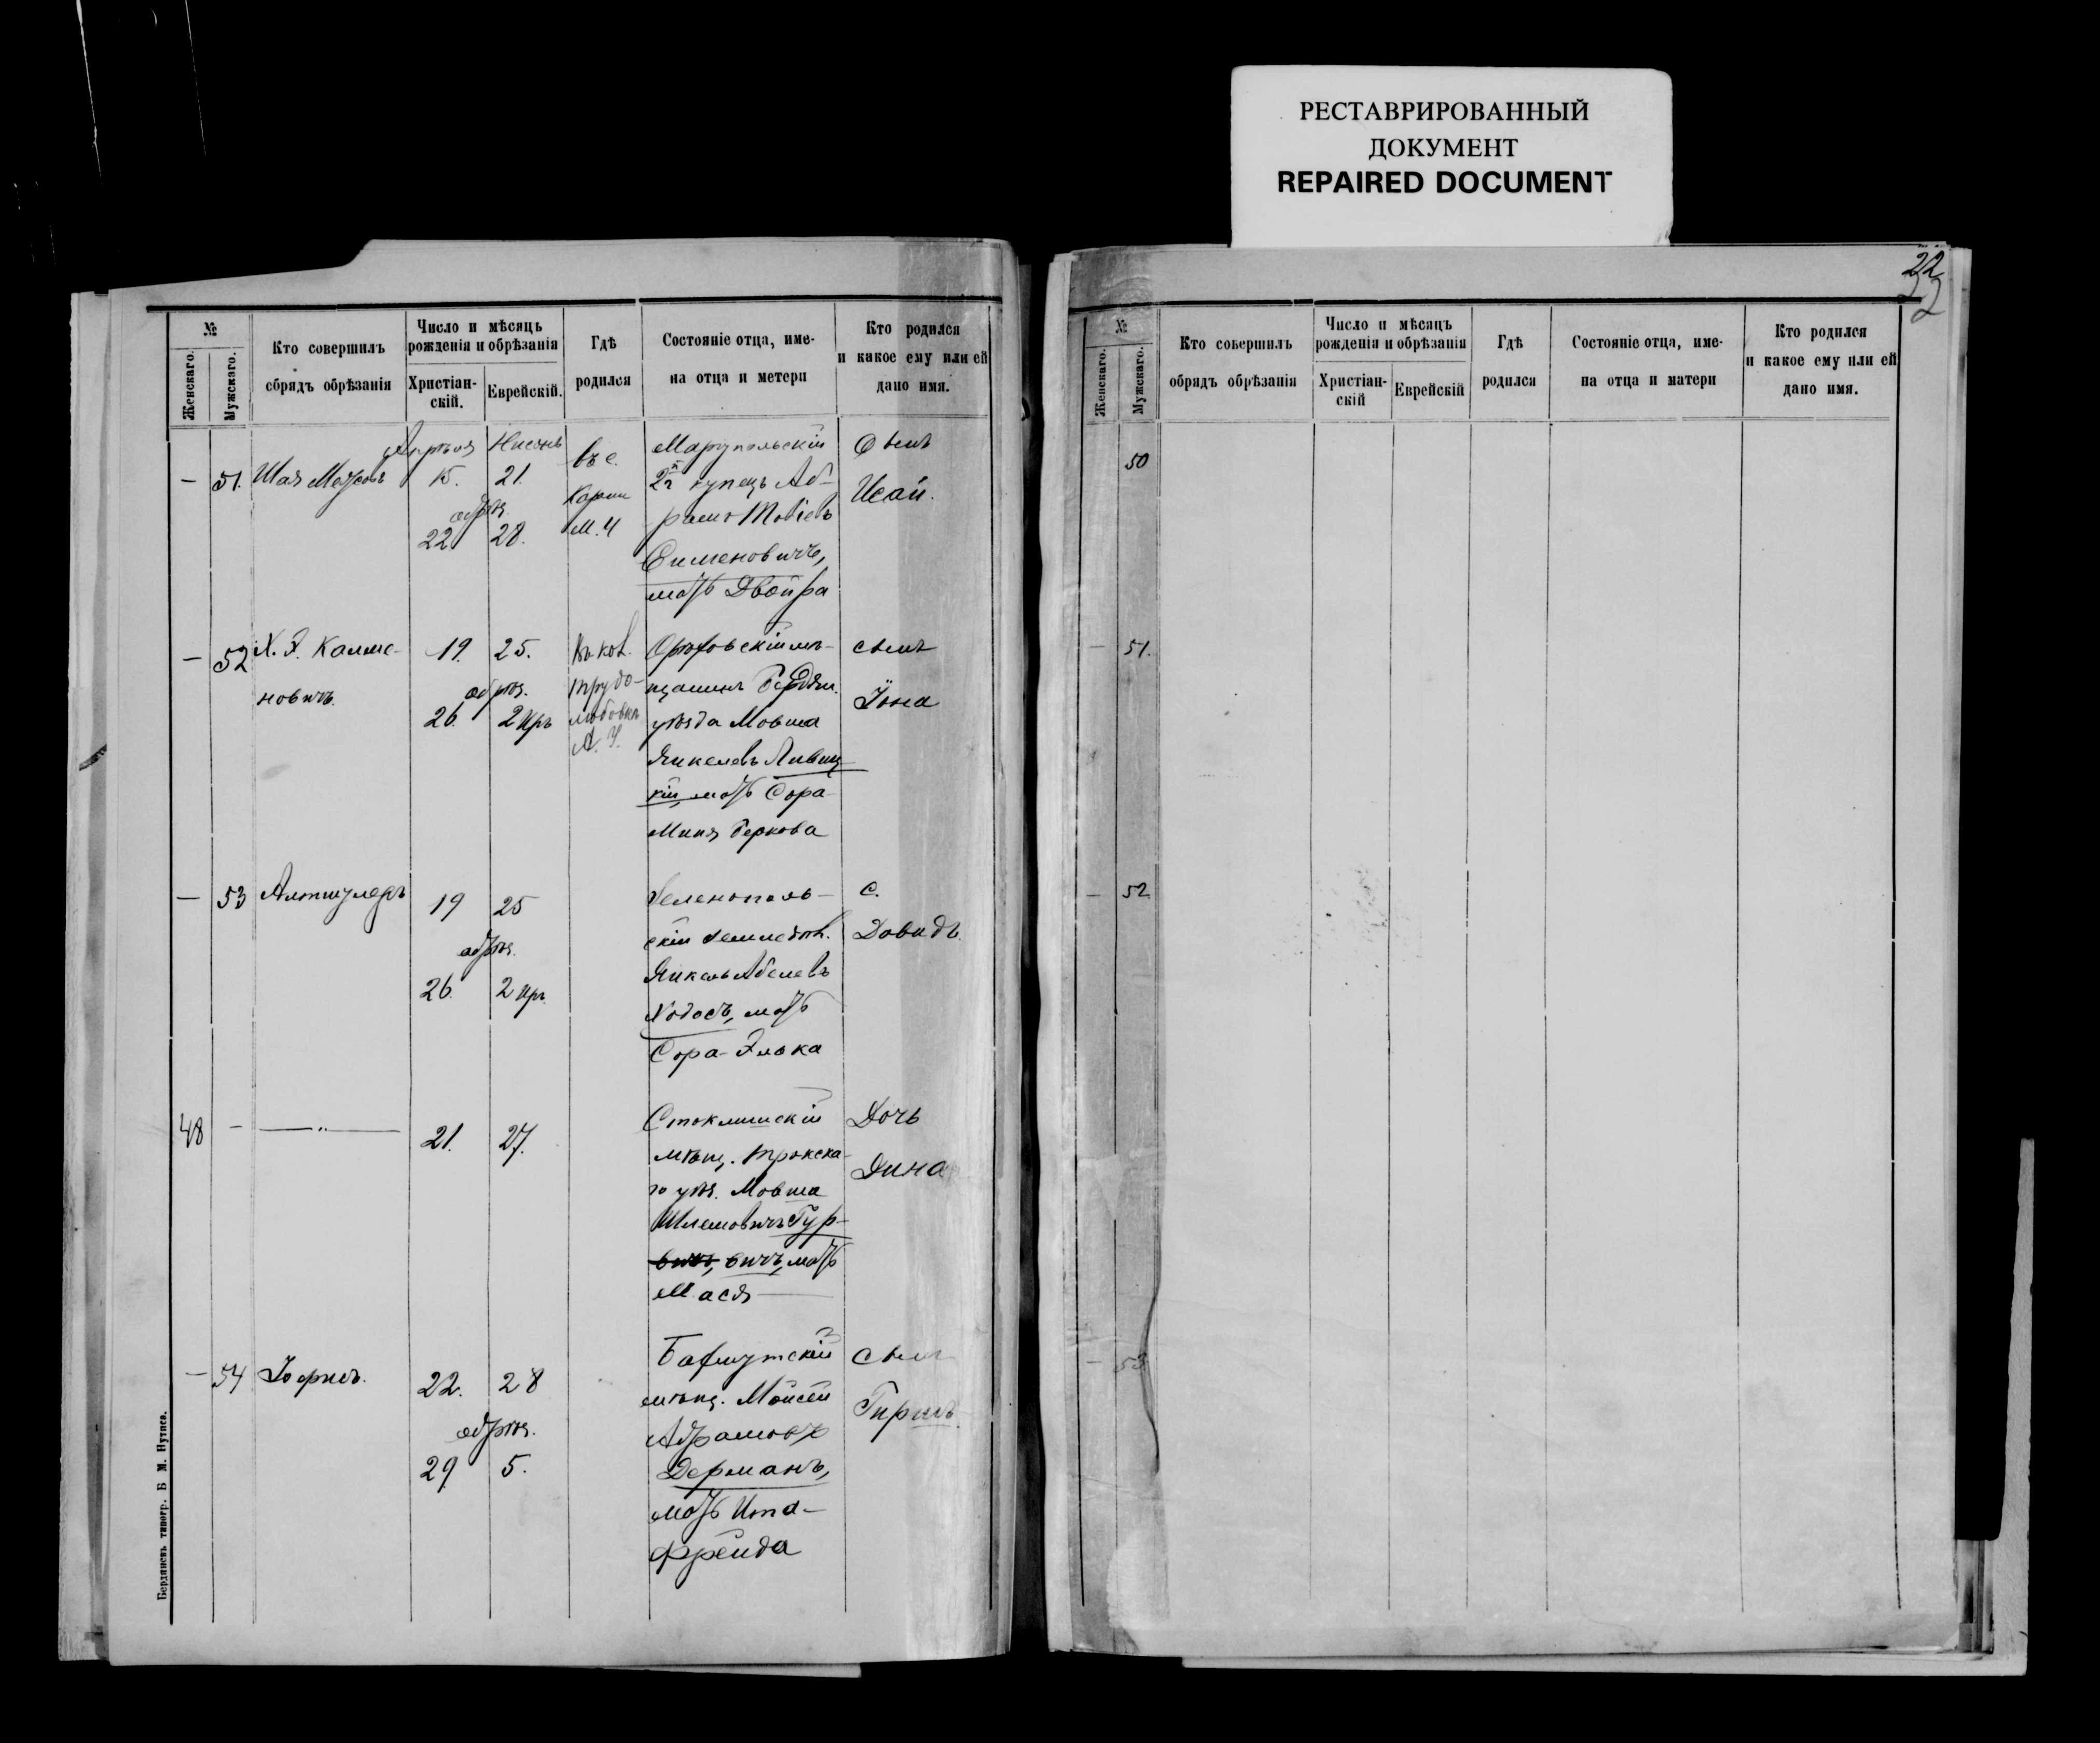 РЕСТАВРИРОВАННЫЙ
ДОКУМЕНТ
REPAIRED DOCUMENT
22
№
Женскаго.
Мужскаго.
Кто совершилъ
обрядъ обрѣзанія
Число и мѣсяць
рожденія и обрѣзанія
Христіан-
скій.
Еврейскій.
Гдѣ
родился
Состояніе отца, име-
на отца и метери
Кто родился
и какое ему или ей
дано имя.
— 51. Шая
Апрѣля Нисанъ
15. 21.
обрѣз.
22 28.
въ с.
М. У
Маріупольскій
2й г купецъ Аб-
рамъ
Сименовичъ,
мать Двойра
Сынъ
Исай.
— 52 Х. Э. Калме-
новичъ.
19. 25.
обрѣз.
26. 2 Iяръ
Въ кол.
трудо-
любовкѣ
А. У.
Орѣховскій мѣ-
щанинъ Бердян.
уѣзда Мовша
Янкелевъ Ливиц-
кій, мать Сора
Миня Беркова
сынъ
Іона
— 53 Алтшулеръ
19 25
обрѣз.
26. 2 Iяр.
Зеленополь-
скій земледѣл.
Янкель Абелевъ
Ходосъ, мать
Сора-Элька
С.
Довидъ.
48 — —„—
21. 27.
Стоклишскій
мѣщ. Трокска-
го уѣз. Мовша
Шлемовичъ Гур-
вичъ, мать
Мася
Дочь
Дина
— 54
22. 28
обрѣз.
29 5.
Бахмутскій
мѣщ. Мойсей
Абрамовъ
Дерманъ,
мать Ита-
Фрейда
Сынъ
Гиршъ.
Бердянскъ типогр. Б М.
№
Женскаго.
Мужскаго.
Кто совершилъ
обрядъ обрѣзанія
Число и мѣсяцъ
рожденія и обрѣзанія
Христіан-
скій
Еврейскій
Гдѣ
родился
Состояніе отца, име-
на отца и матери
Кто родился
и какое ему или ей
дано имя.
50
— 51.
— 52
— 53